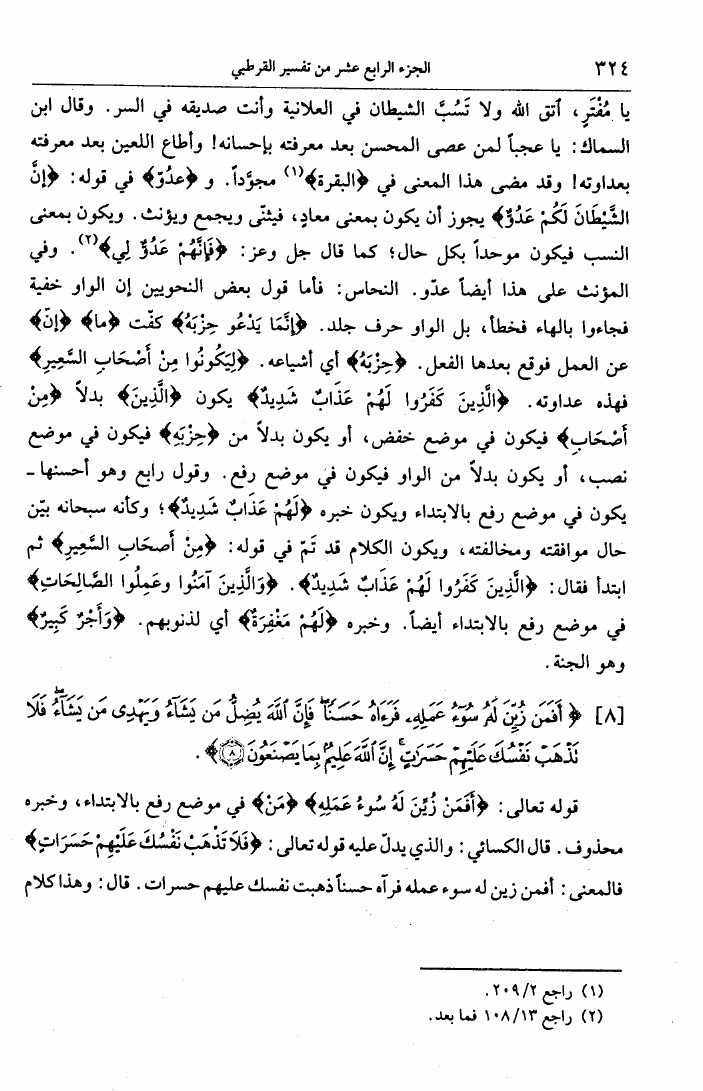 ٣٢٤
الجزء الرابع عشر من تفسير القرطبي
يا مُفْتَرٍ، ٱتق الله ولا تَسُبَّ الشيطان في العلانية وأنت صديقه في السر. وقال ابن
السماك: يا عجباً لمن عصى المحسن بعد معرفته بإحسانه! وأطاع اللعين بعد معرفته
بعداوته! وقد مضى هذا المعنى في ﴿البقرة﴾(١) مجوَّداً. و ﴿عدُوّ﴾ في قوله: ﴿إنَّ
الشَّيْطَانَ لَكُمْ عَدُوٌّ﴾ يجوز أن يكون بمعنى معادٍ، فيثنّى ويجمع ويؤنث. ويكون بمعنى
النسب فيكون موحداً بكل حال؛ كما قال جل وعز: ﴿فَإِنَّهُمْ عَدُوٌّ لِي﴾(٢). وفي
المؤنث على هذا أيضاً عدّو. النحاس: فأما قول بعض النحويين إن الواو خفية
فجاءوا بالهاء فخطأ، بل الواو حرف جلد. ﴿إنَّمَا يَدْعُو حِزْبَهُ﴾ كفّت ﴿ما﴾ ﴿إنّ﴾
عن العمل فوقع بعدها الفعل. ﴿حِزْبَهُ﴾ أي أشياعه. ﴿لِيَكُونُوا مِنْ أَصْحَابِ السَّعِيرِ﴾
فهذه عداوته. ﴿الَّذِينَ كَفَرُوا لَهُمْ عَذَابٌ شَدِيدٌ﴾ يكون ﴿الَّذِينَ﴾ بدلاً ﴿مِنْ
أَصْحَابِ﴾ فيكون في موضع خفض، أو يكون بدلاً من ﴿حِزْبَهِ﴾ فيكون في موضع
نصب، أو يكون بدلاً من الواو فيكون في موضع رفع. وقول رابع وهو أحسنها ـ
يكون في موضع رفع بالابتداء ويكون خبره ﴿لَهُمْ عَذَابٌ شَدِيدٌ﴾؛ وكأنه سبحانه بيّن
حال موافقته ومخالفته، ويكون الكلام قد تمّ في قوله: ﴿مِنْ أَصحَابِ السَّعِيرِ﴾ ثم
ابتدأ فقال: ﴿الَّذِينَ كَفَرُوا لَهُمْ عَذَابٌ شَدِيدٌ﴾. ﴿وَالَّذِينَ آمَنُوا وعَمِلُوا الصَّالِحَاتِ﴾
في موضع رفع بالابتداء أيضاً. وخبره ﴿لَهُمْ مَغْفِرَةٌ﴾ أي لذنوبهم. ﴿وَأَجْرٌ كَبِيرٌ﴾
وهو الجنة.
[٨] ﴿أَفَمَن زُيِّنَ لَهُۥ سُوٓءُ عَمَلِهِۦ فَرَءَاهُ حَسَنًاۖ فَإِنَّ ٱللَّهَ يُضِلُّ مَن يَشَآءُ وَيَهْدِى مَن يَشَآءُۖ فَلَا
نَذْهَبْ نَفْسُكَ عَلَيْهِمْ حَسَرَٰتٍۚ إِنَّ ٱللَّهَ عَلِيمٌۢ بِمَا يَصْنَعُونَ ٨﴾.
قوله تعالى: ﴿أَفَمَنْ زُيِّنَ لَهُ سُوءُ عَمَلِهِ﴾ ﴿مَنْ﴾ في موضع رفع بالابتداء، وخبره
محذوف. قال الكسائي: والذي يدلّ عليه قوله تعالى: ﴿فَلَا تَذْهَبْ نَفْسُكَ عَلَيْهِمْ حَسَرَاتٍ﴾
فالمعنى: أفمن زين له سوء عمله فرآه حسناً ذهبت نفسك عليهم حسرات. قال: وهذا كلام
(١) راجع ٢٠٩/٢.
(٢) راجع ١٠٨/١٣ فما بعد.